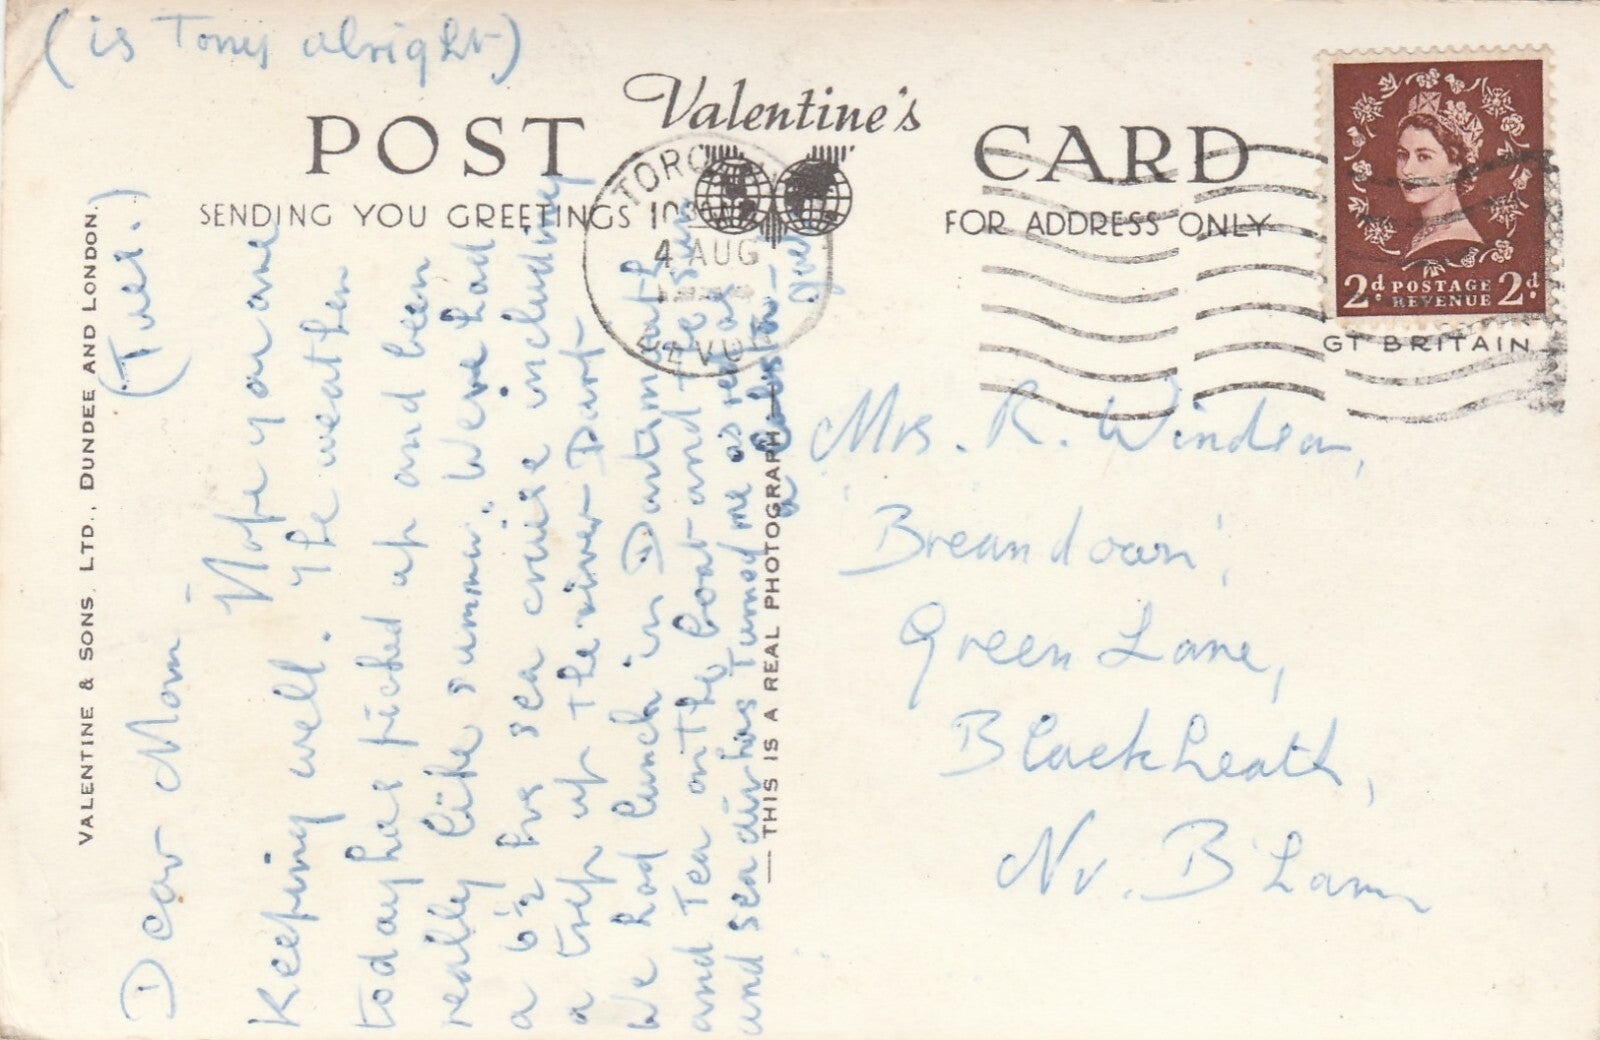 (is Tony alright)
Valentine's
POST CARD
SENDING YOU GREETINGS
FOR ADDRESS ONLY
4 AUG
2d. POSTAGE REVENUE 2d.
GT BRITAIN
VALENTINE & SONS, LTD., DUNDEE AND LONDON.
THIS IS A REAL PHOTOGRAPH
(Tues.)
Dear Mom
Hope you are
Keeping well. The weather
today has picked up and been
really like summer. We've had
a 6½ hrs sea cruise including
a trip up the river Dart
We had lunch in Dartmouth
and Tea on the boat and the sun
and sea air has turned me as red as
a lobster
Mrs. R. Windsor,
'Breandown',
Green Lane,
Blackheath,
Nr. B'ham